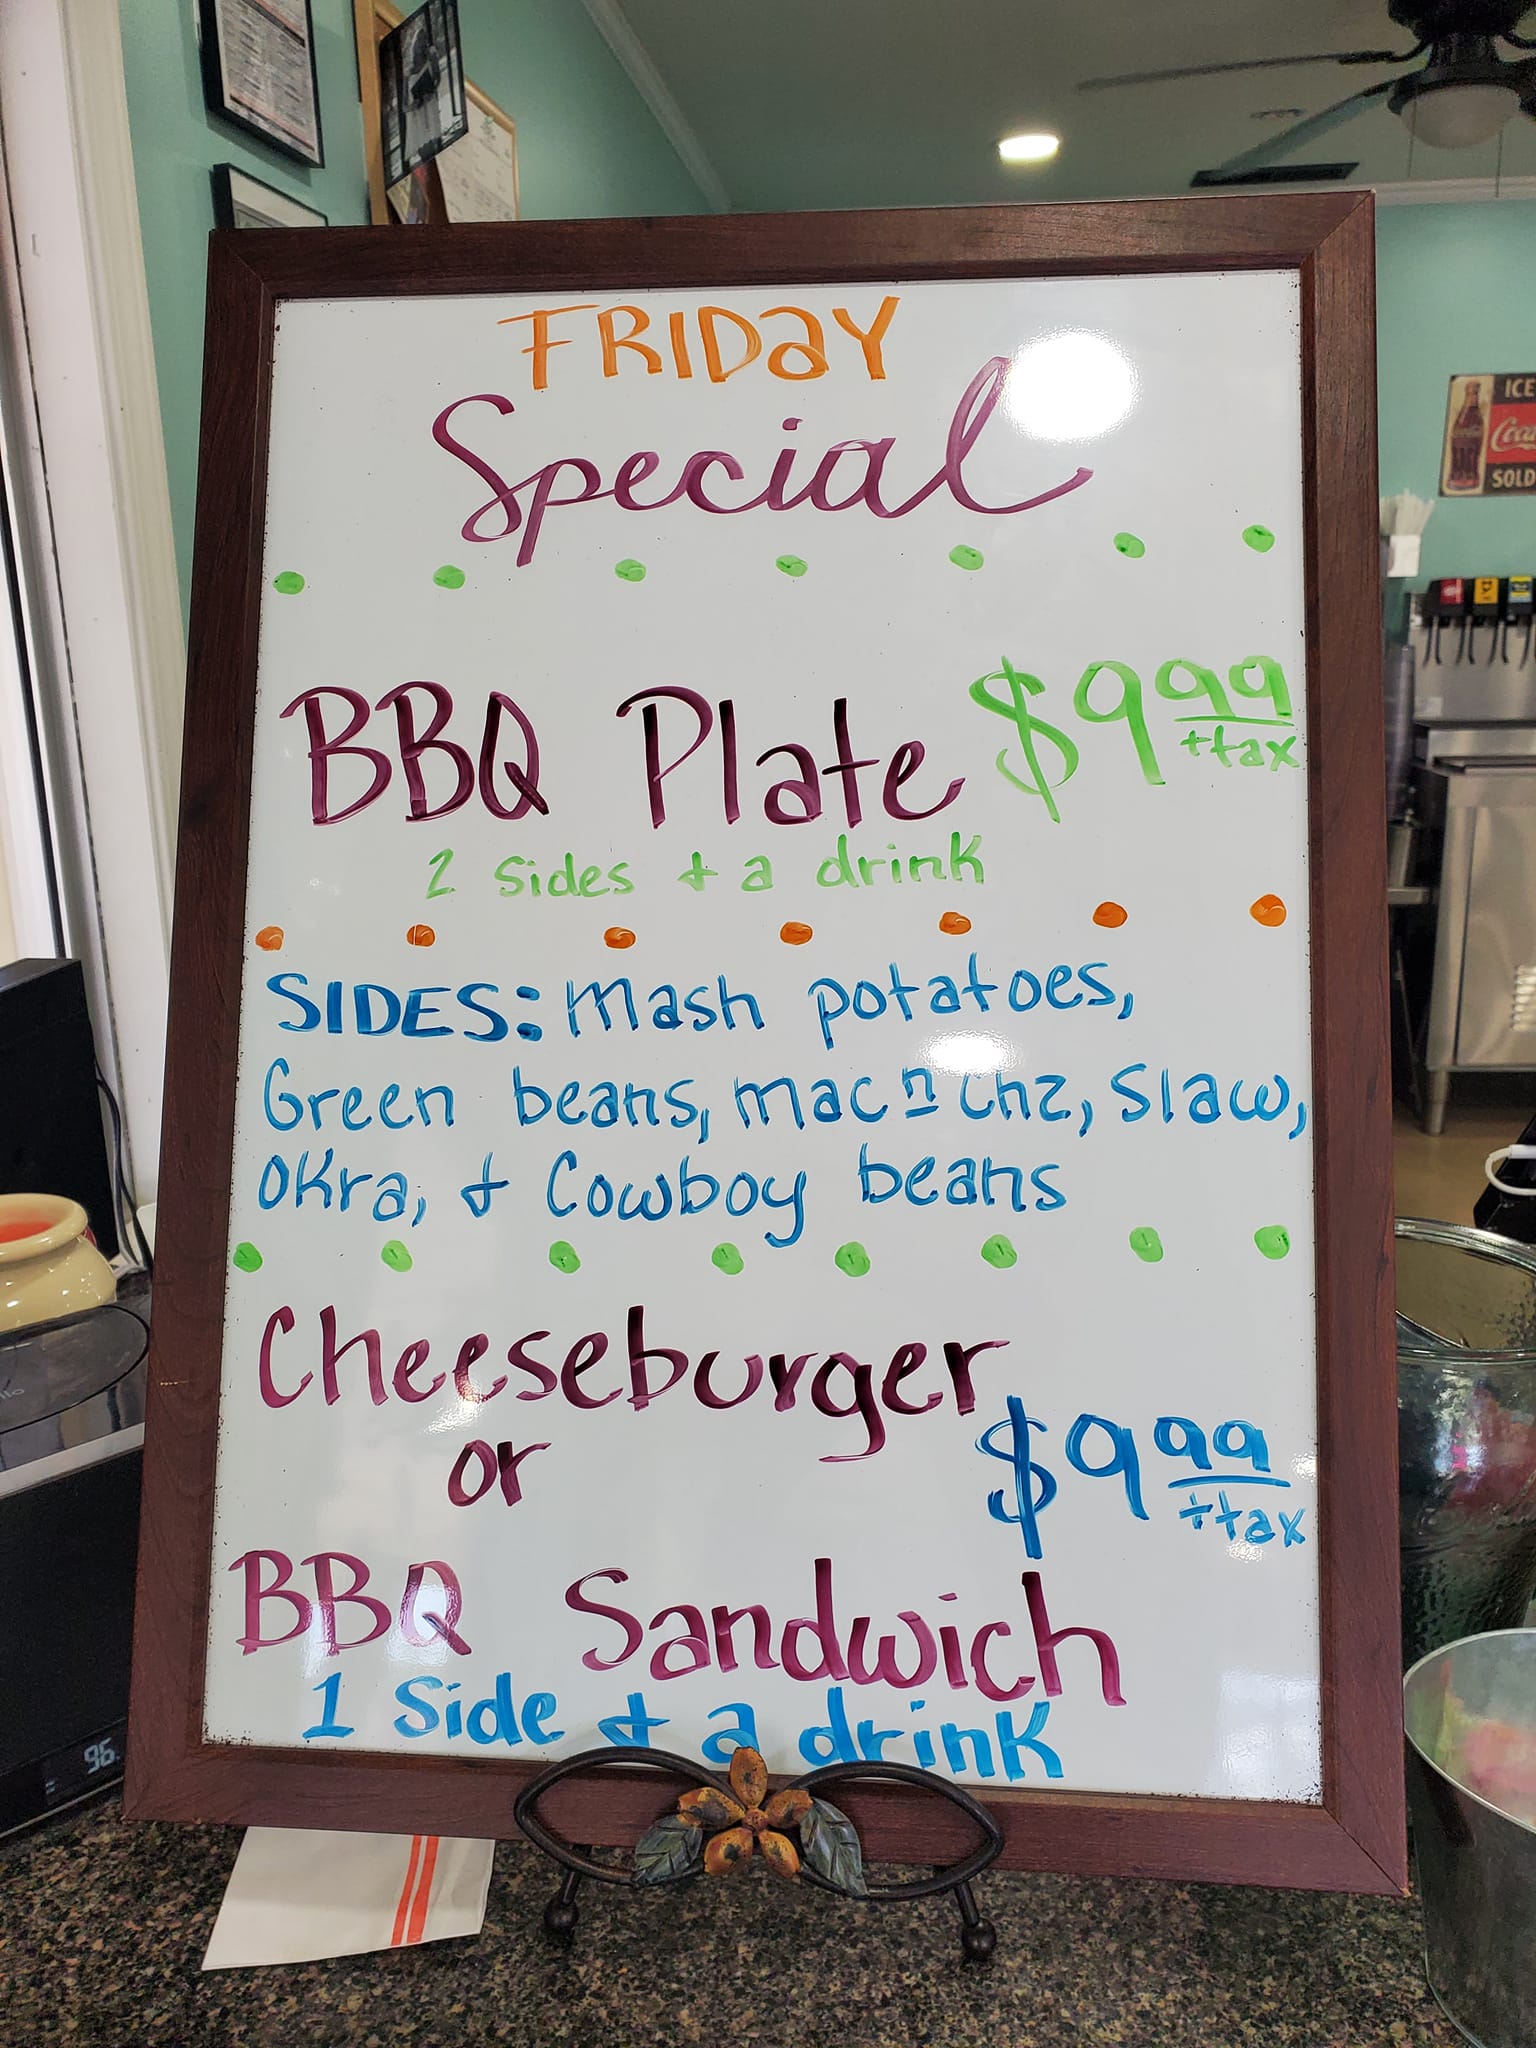 FRIDAY
Special
BBQ Plate $9.99
+tax
2 sides + a drink
SIDES: mash potatoes,
Green beans, mac n chz, slaw,
OKra, + Cowboy beans
Cheeseburger
or
$9.99
+tax
BBQ Sandwich
1 Side + a drink
ICE
Coca
SOLD
96